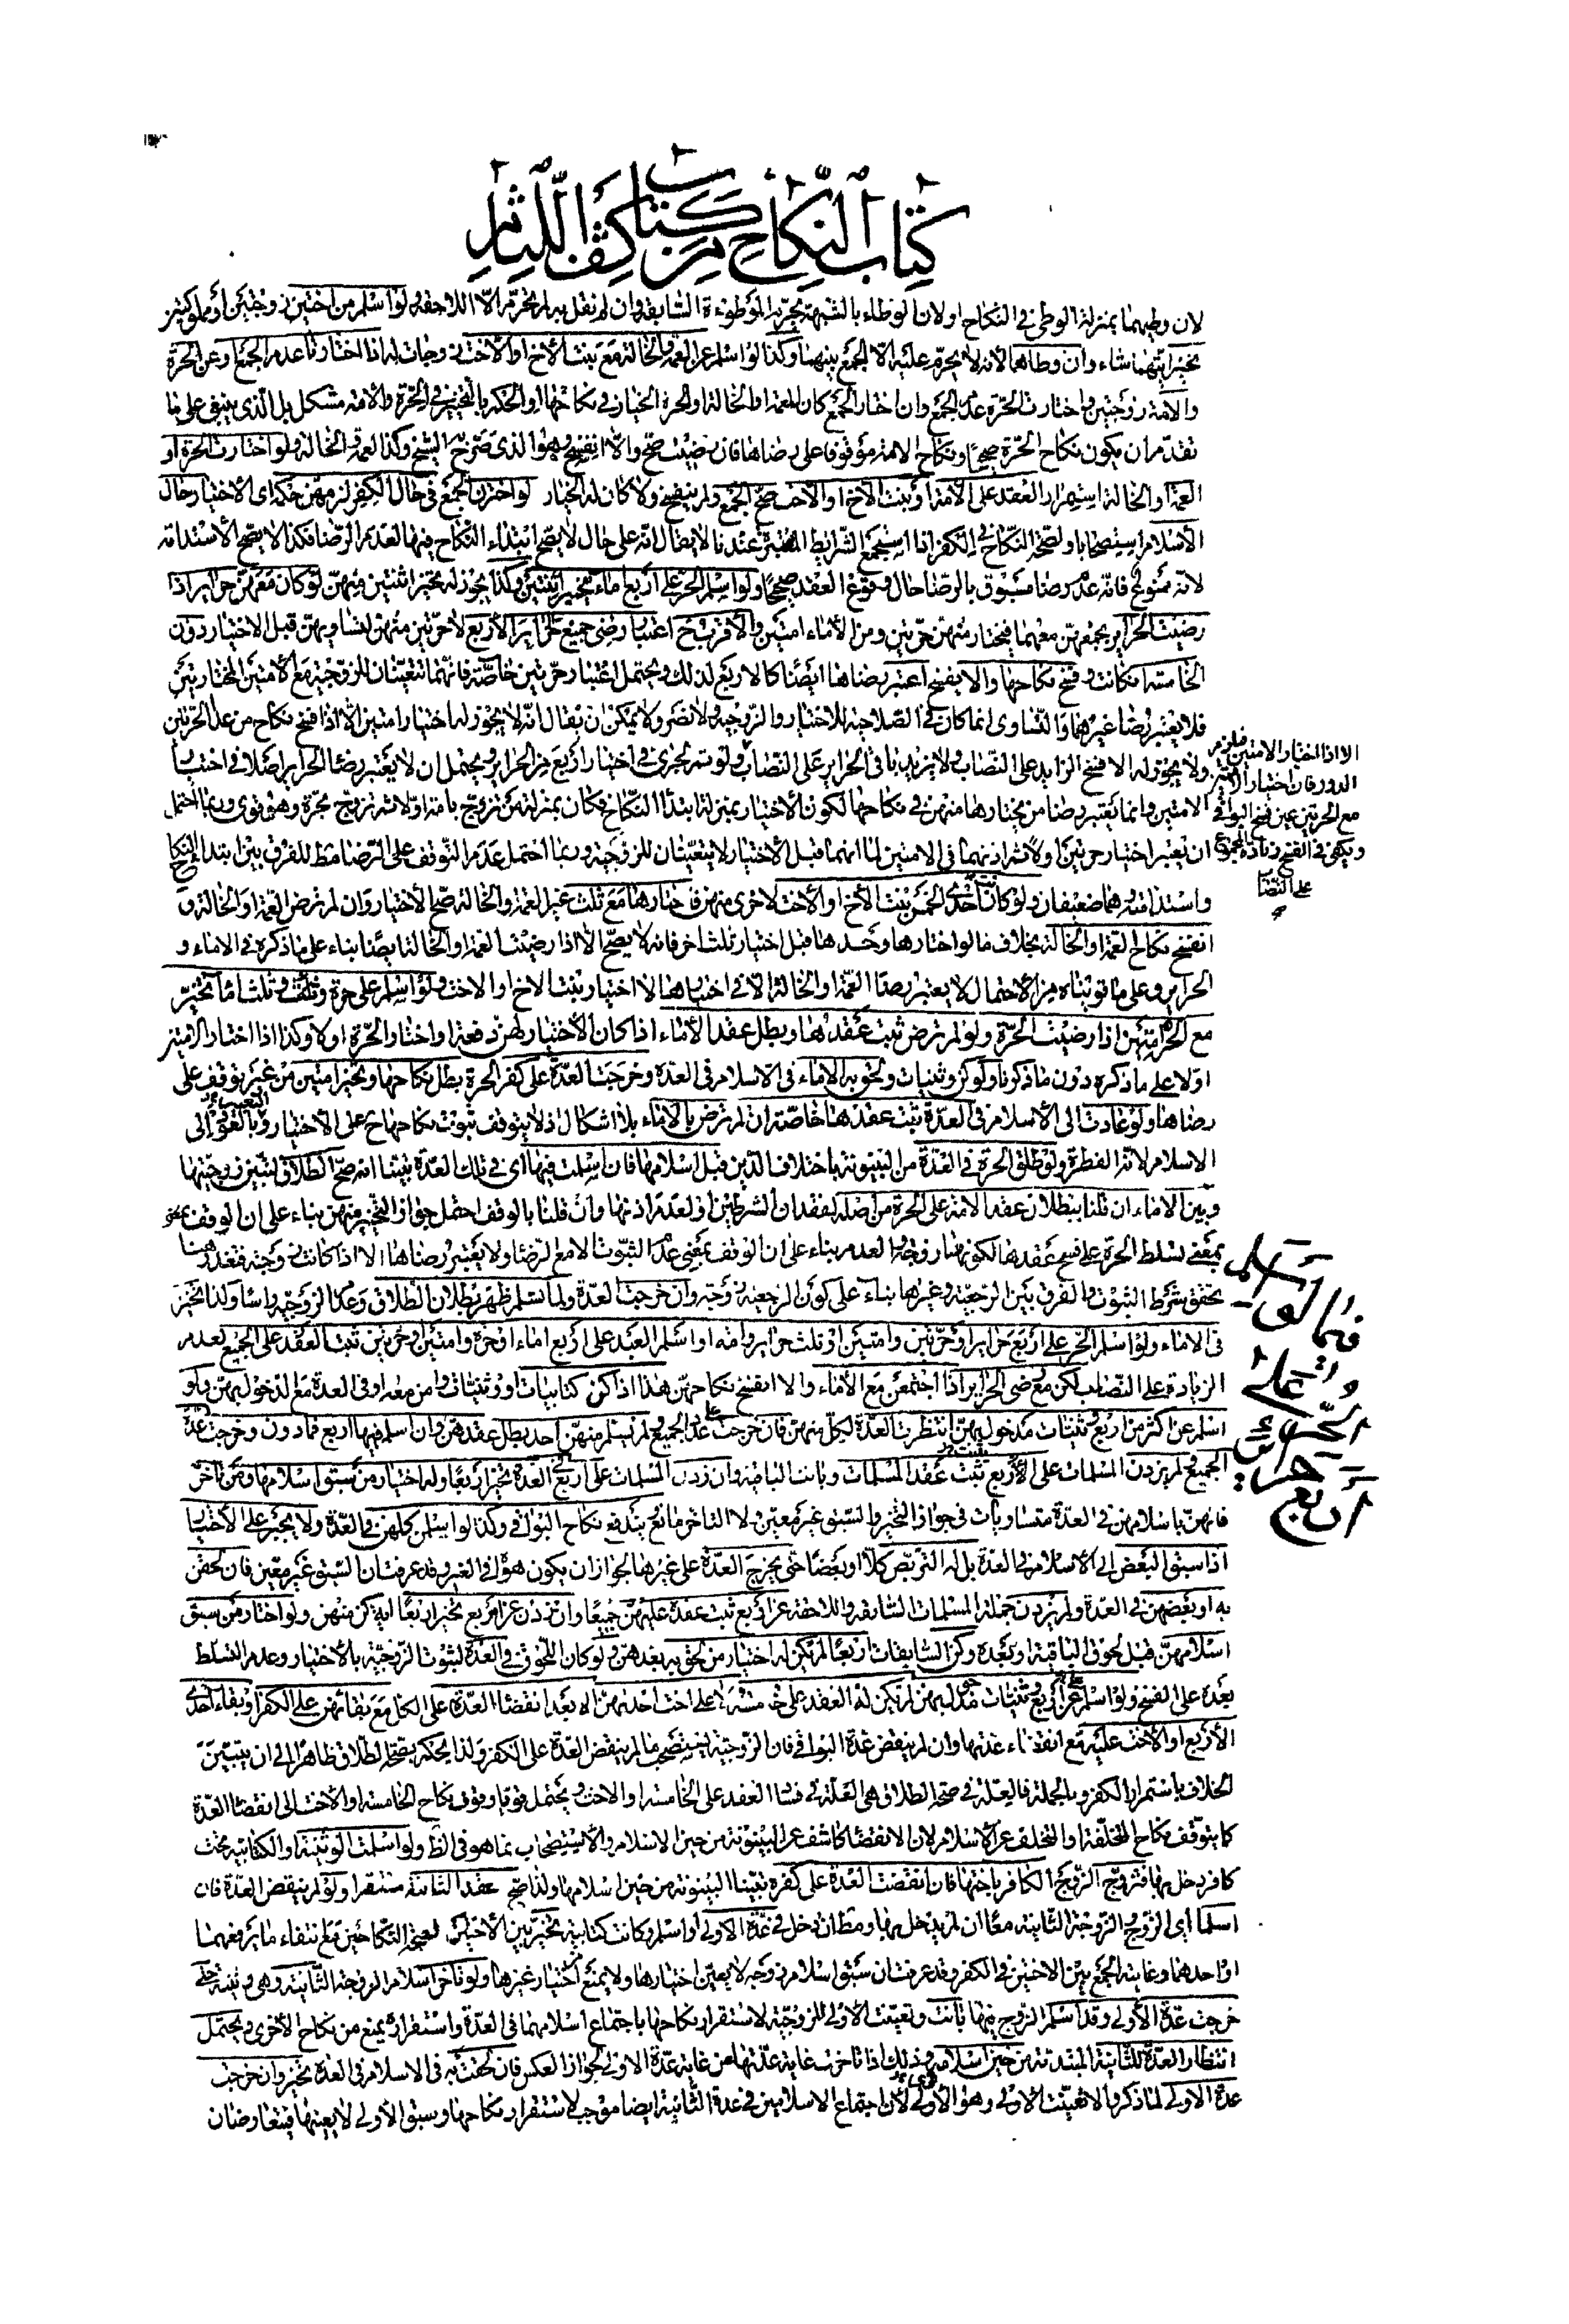 كتاب النكاح من كتاب كشف اللثام
لان وطيهما بمنزلة الوطى في النكاح او لان الوطاء بالشبهة يحرم الموطوءة السابقة وان لم نقل به لم يحرم الا اللاحقة ولو اسلم من اختين زوجتين او مملوكتين
تخير ايتهما شاء وان وطاهما لانه لا يحرم عليه الا الجمع بينهما وكذا لو اسلم عن العمة والخالة مع بنت الاخ او الاخت زوجات له اذا اختارتا عدم الجمع او عن الحرة
والامة زوجتين واختارت الحرة عدم الجمع وان اختار الجمع كان للعمة او الخالة او الحرة الخيار في نكاحها او الحكم بالتخيير في الحرة والامة مشكل بل الذي ينبغي على ما
تقدم ان يكون نكاح الحرة صحيحا ونكاح الامة موقوفا على رضاها فان رضيت صح والا انفسخ وهو الذي صرح الشيخ وكذا العمة والخالة ولو اختارت الحرة او
العمة او الخالة استمرار العقد على الامة او بنت الاخ او الاخت صح الجمع ولم ينفسخ ولا كان له الخيار لو اخترن الجمع في حال الكفر لزمهن حكم اى الاختيار حال
الاسلام استصحابا ولصحة النكاح في الكفر اذا استجمع الشرايط المعتبرة عندنا لا يقال انه على حال لا يصح ابتداء النكاح فيها لعدم الرضا فكذا لا يصح الاستدامة
لانه ممنوع فانه عدم رضا مسبوق بالرضا حال وقوع العقد صحيحا ولو اسلم الحر على اربع اماء تخير اثنتين وكذا يجوز له تخير اثنتين منهن لو كان معهن حراير اذا
رضيت الحراير بجمعهن معهما فيختار منهن حرتين ومن الاماء امتين والاقرب ح اعتبار رضى جميع الحراير الاربع لا حرتين منهن لتساويهن قبل الاختيار دون
الخامسة ان كانت وفسخ نكاحها والا يفسخ اعتبر رضاها ايضا كالاربع لذلك ويحتمل اعتبار حرتين خاصة فانهما تتعينان للزوجية مع الامتين المختارتين
فلا يعتبر رضا غيرهما والتساوى انما كان في الصلاحية للاختيار والزوجية ولا تضر ولا يمكن ان يقال انه لا يجوز له اختيار امتين الا اذا فسخ نكاح من عدا الحرتين
ولا يجوز له الا فسخ الزايد على النصاب ولا يزيد باقى الحراير على النصاب
الا اذا اختار الامتين فلزم
الدور فان اختيار الامتين
مع الحرتين عين فسخ البواقى
ويكفى في الفسخ زيادة المجموع
على النصاب
الامتين وانما يعتبر رضا من يختارها منهن في نكاحها لكون الاختيار بمنزلة ابتداء النكاح فكان بمنزلة من تزوج بامة اولا ثم تزوج بحرة وهو قوى وربما احتمل
ان يعتبر اختيار حرتين اولا ثم اذنهما في الامتين لما انهما قبل الاختيار لا يتعينان للزوجية وربما احتمل عدم التوقف على الرضا مط للفرق بين ابتداء النكاح
واستدامته وهما ضعيفان ولو كان احدى الخمس بنت الاخ او الاخت لاخرى منهن فاختارها مع ثلث غير العمة والخالة صح الاختيار وان لم ترض العمة او الخالة و
انفسخ نكاح العمة او الخالة بخلاف ما لو اختارها وحدها قبل اختيار ثلث اخر فانه لا يصح الا اذا رضيت العمة او الخالة ايضا بناء على ما ذكره في الاماء و
الحراير وعلى ما قويناه من الاحتمال لا يعتبر رضا العمة او الخالة الا في اختيارها لا اختيار بنت الاخ او الاخت ولو اسلم على حرة وثلث اماء تخير
مع الحرة امتين اذا رضيت الحرة ولو لم ترض ثبت عقدها وبطل عقد الاماء اذا كان الاختيار لهن دفعة او اختار الحرة اولا وكذا اذا اختار الامتين
اولا على ما ذكره دون ما ذكرنا ولو كن وثنيات ولحق به الاماء في الاسلام في العدة وخرجت العدة على كفر الحرة بطل نكاحها وتخير امتين من غير توقف على
رضاها ولو عادت الى الاسلام في العدة ثبت عقدها خاصة ان لم ترض بالاماء بلا اشكال اذ لا يتوقف ثبوت نكاحها ح على الاختيار والتعبير بالعود الى
الاسلام لانه الفطرة ولو طلق الحرة في العدة من البينونة باختلاف الدين قبل اسلامها فان اسلمت فيها اى في تلك العدة تبينا انه صح الطلاق لتبين زوجيتها
وبين الاماء ان قلنا ببطلان عقد الامة على الحرة من اصله لفقدان الشرطين او لعدم اذنها وان قلنا بالوقف احتمل جواز التخيير منهن بناء على ان الوقف
بمعنى تسلط الحرة على فسخ عقدها لكونها زوجة والعدم بناء على ان الوقف بمعنى عدم الثبوت الا مع الرضا ولا يعتبر رضاها الا اذا كانت زوجة فقد
تحقق شرط الثبوت والفرق بين الرجعية وغيرها بناء على كون الرجعية زوجة وان خرجت العدة ولما تسلم ظهر بطلان الطلاق وعدم الزوجية راسا ولذا تخير
في الاماء ولو اسلم الحر على اربع حراير او حرتين وامتين او ثلث حراير وامة او اسلم العبد على اربع اماء او حرة وامتين او حرتين ثبت العقد على الجميع لعدم
فيما لو اسلم
الحر على
اربع حراير
الزيادة على النصاب لكن مع رضى الحراير اذا اجتمعن مع الاماء والا انفسخ نكاحهن هذا اذا كن كتابيات او وثنيات وامن معه او في العدة مع الدخول بهن ولو
اسلم عن اكثر من اربع وثنيات مدخول بهن انتظرت العدة لكل منهن فان خرجت عدة الجميع ولم تسلم منهن احد بطل عقدهن وان اسلم فيها اربع فما دون وخرجت عدة
الجميع ولم يزدن المسلمات على الاربع ثبت عقد المسلمات وبانت الباقية وان زدن المسلمات على اربع في العدة تخير اربعا وله اختيار من سبق اسلامها ومن تاخر
فانهن باسلامهن في العدة متساويات في جواز التخيير والسبق غير معين ولا التاخر مانع يندفع نكاح البواقى وكذا لو اسلمن كلهن في العدة ولا يجبر على الاختيار
اذا سبق البعض الى الاسلام في العدة بل له التربص كلا او بعضا حتى يخرج العدة على غيرها لجواز ان يكون هواه في الغير وقد عرفت ان السبق غير معين فان لحقن
به او بعضهن في العدة ولم يزدن جملة المسلمات السابقة واللاحقة عن اربع ثبت عقده عليهن جميعا وان زدن عن اربع تخير اربعا ايه كن منهن ولو اختار من سبق
اسلامهن قبل لحوق الباقية او بعده وكن السابقات اربعا لم يكن له اختيار من لحق به بعدهن ولو كان اللحوق في العدة لثبوت الزوجية بالاختيار وعدم التسلط
بعده على الفسخ ولو اسلم عن اربع وثنيات مدخول بهن لم يكن له العقد على خامسة ولا على اخت احديهن الا بعد انقضاء العدة على الكل مع بقائهن على الكفر او بقاء احدى
الاربع او الاخت عليه مع انقضاء عدتها وان لم ينقض عدة البواقى فان الزوجية يستصحب ما لم ينقض العدة على الكفر ولذا يحكم بصحة الطلاق ظاهرا الى ان يتبين
الخلاف باستمرار الكفر وبالجملة فالعلة في صحة الطلاق هى العلة في فساد العقد على الخامسة او الاخت ويحتمل قويا وقوف نكاح الخامسة او الاخت الى انقضاء العدة
كما يتوقف نكاح المخلفة او المتخلف عن الاسلام لان الانقضاء كاشف عن البينونة من حين الاسلام والاستصحاب بما هو في الظ ولو اسلمت الوثنية او الكتابية تحت
كافر دخل بها فتزوج الزوج الكافر باختها فان انقضت العدة على كفره تبينا البينونة من حين اسلامها ولذا صح عقد الثانية مستقرا ولو لم ينقض العدة فان
اسلما اى الزوج والزوجة الثانية معا ان لم يدخل بها ومط ان دخل في عدة الاولى او اسلم وكانت كتابية تخير بين الاختين لصحة النكاحين مع انتفاء ما يرفعهما
او احدهما وغايته الجمع بين الاختين في الكفر وقد عرفت ان سبق اسلام زوجه لا يعين اختيارها ولا يمنع من اختيار غيرها ولو تاخر اسلام الزوجة الثانية وهى وثنية حتى
خرجت عدة الاولى وقد اسلم الزوج فيها بانت وتعينت الاولى للزوجية لاستقرار نكاحها باجتماع اسلامهما في العدة واستقراره يمنع من نكاح الاخرى ويحتمل
انتظار العدة للثانية المبتدئة من حين اسلامه وذلك اذا تاخرت غاية عدتها من غاية عدة الاولى لجواز العكس فان لحقت به في الاسلام في العدة تخير وان خرجت
عدة الاولى لما ذكر والا تعينت الاولى وهو الاولى لان اجتماع الاسلامين في عدة الثانية ايضا موجب لاستقرار نكاحها وسبق الاولى لا يعينها فيتعارضان